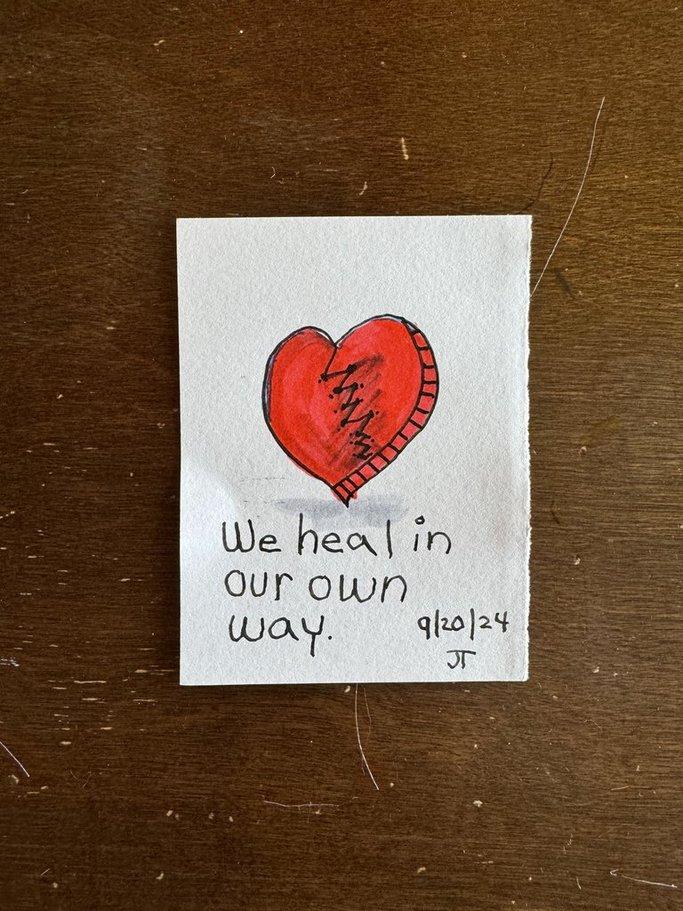 We heal in
our own
way.
9/20/24
JT